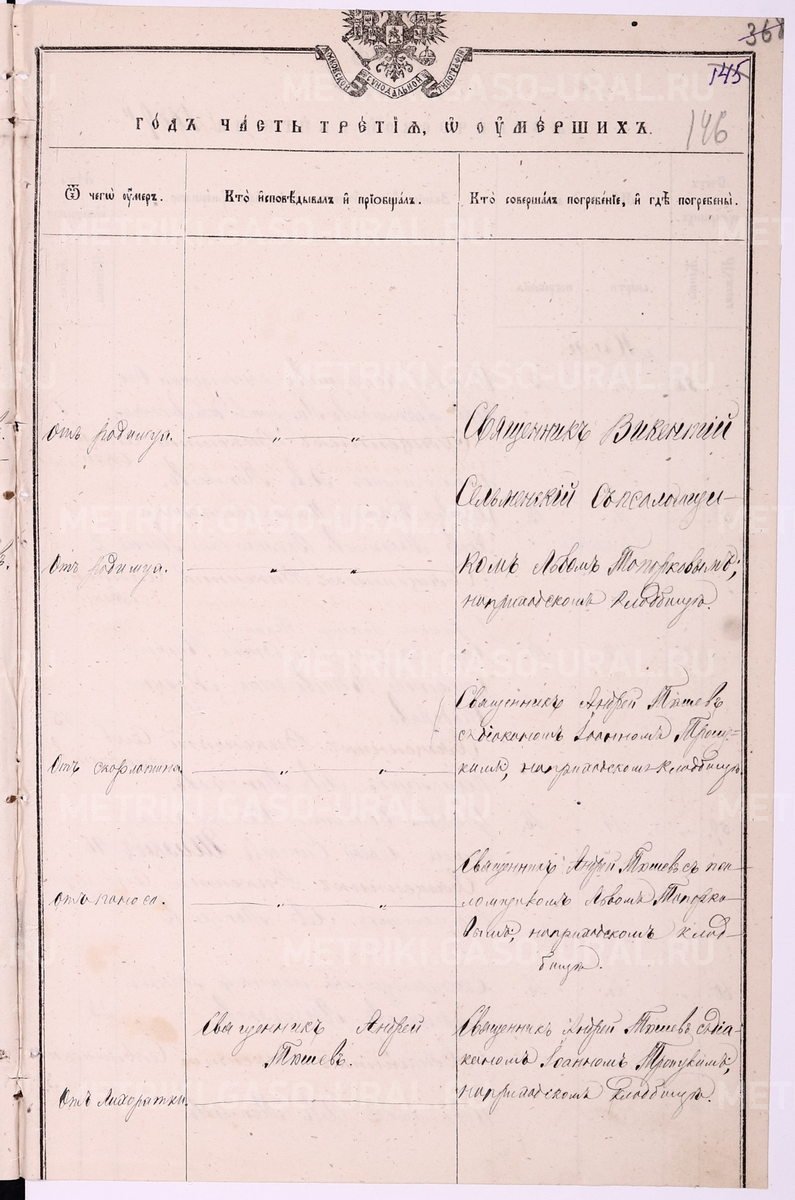 368
145
146
ГОДЪ ЧАСТЬ ТРЕТІЯ, Ѡ ОУМЕРШИХЪ.
Ѿ чегѡ оумеръ.
Кто исповѣдывалъ и пріобщалъ.
Кто совершалъ погребеніе, и гдѣ погребены.
Отъ родимца.
Священникъ Викентій
Сельменскій съ псаломщи-
Отъ родимца.
комъ Львомъ Топорковымъ;
на приходскомъ кладбищѣ.
Священникъ Андрей Тюшевъ
съ діакономъ Іоанномъ
Отъ скарлатины
на приходскомъ кладбищѣ.
Священникъ Андрей Тюшевъ съ пса-
Отъ поноса.
ломщикомъ Львомъ Топорко-
вымъ; на приходскомъ клад-
бищѣ.
Священникъ Андрей
Тюшевъ.
Священникъ Андрей Тюшевъ съ діа-
кономъ Іоанномъ
Отъ лихоратки.
на приходскомъ кладбищѣ.
METRIKI.GASO-URAL.RU